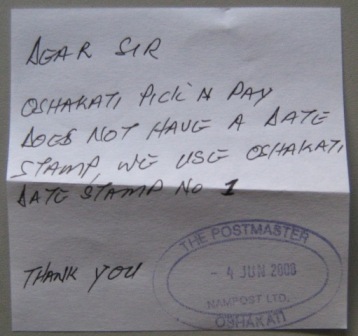 DEAR SIR
OSHAKATI PICK N PAY
DOES NOT HAVE A DATE
STAMP, WE USE OSHAKATI
DATE STAMP No 1
THANK YOU
THE POSTMASTER
- 4 JUN 2009
NAMPOST LTD.
OSHAKATI